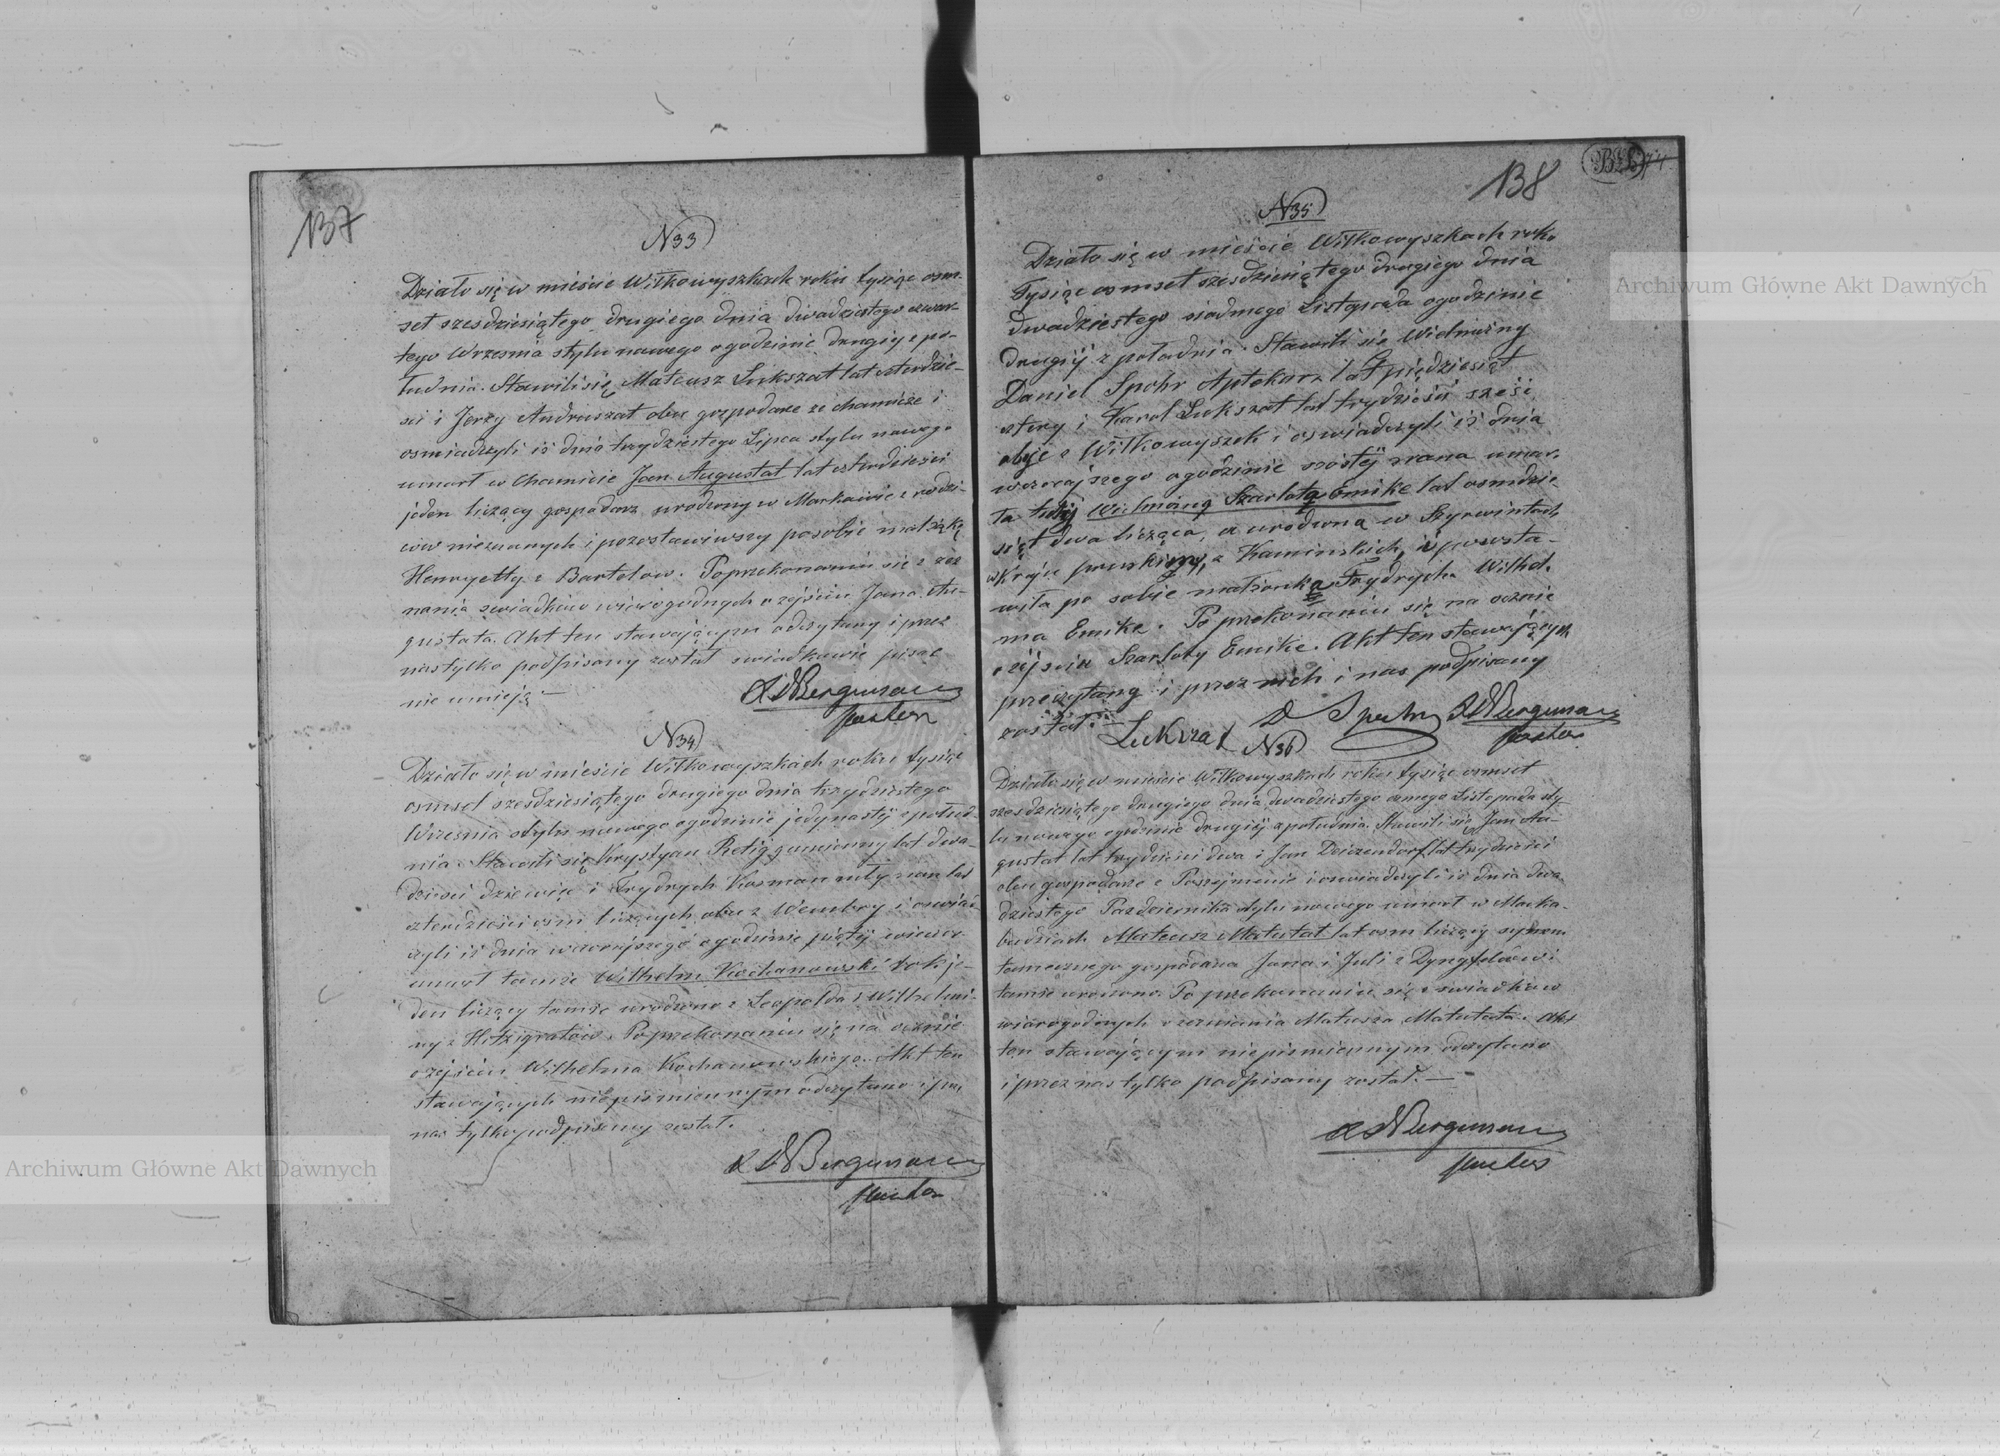 137
N33
Działo się w mieście Wiłkowyszkach roku tysiąc osm-
set szesdziesiątego drugiego dnia dwudziestego czwar-
tego Wrzesnia stylu nowego ogodzinie drugiy z po-
łudnia. Stawili się Mateusz Lukszat lat czterdzie-
sci i Jerzy Andruszat obu gospodarze ze chamicze i
oswiadczyli iż dnia trzydziestego Lipca stylu nowego
umarł w Chamicie Jan Augustat lat czterdziesci
jeden liczący gospodarz urodzony w Markawie z rodzi-
ców nieznanych i pozostawiwszy posobie małżąkę
Henryettę z Bartelow. Poprzekonaniu się z zez
nania swiadków wiarogodnych o zejściu Jana Au-
gustata. Akt ten stawającym odczytany i przez
nas tylko podpisany został swiadkowie pisac
nie umieją —
Bergmann
pastor
N34
Działo się w mieście Wiłkowyszkach roku tysiąc
osmset szesdziesiątego drugiego dnia trzydziestego
Wrzesnia stylu nowego ogodzinie jedynastej z połud-
nia. Stawili się Krystyan Retig gumienny lat dwa-
dziesci dziewięc i Frydrych Kosman lat
czterdziesci osm liczących obu z i oswiad-
czyli iż dnia wczorajszego ogodzinie piątej wieczor
umarł tamże Wilhelm Kochanowski rok je-
den liczący tamże urodzony z Leopolda i Wilhelmi-
ny z Hitzigratów. Poprzekonaniu się na ocznie
o zejściu Wilhelma Kochanowskiego. Akt ten
stawających niepismiennym odczytano i przez
nas tylko podpisany został.
Bergmann
pastor
138
N35
Działo się w mieście Wiłkowyszkach roku
Tysiąc osmset szesdziesiątego drugiego dnia
dwudziestego siodmego Listopada ogodzinie
drugiij z południa. Stawili się Wielmożny
Daniel Spohr Aptekarz lat pięćdziesiąt
cztery i Karol Lukszat lat trydzieści sześć
obije z Wiłkowyszek i oswiadczyli iż dnia
wczorajszego ogodzinie szóstej zrana umar-
ła tutej Wielmożną Szarlotą Emike lat osmdzie-
siąt dwa licząca, a urodzona w Szyrwintach
w Kraju pruskimy, z Kaminskich, i pozosta-
wiła po sobie małżonka Frydrych Wilhel-
ma Emike. Po przekonaniu się na ocznie
o zejściu Szarloty Emike. Akt ten stawającym
przeczytany i przez nich i nas podpisany
został.—
Lukszat D Spohr Bergmann
pastor
N36
Działo się w mieście Wiłkowyszkach roku tysiąc osmset
szesdziesiątego drugiego dnia dwudziestego osmego Listopada sty-
lu nowego ogodzinie drugiej z południa. Stawili się Jan Au-
gustat lat trydzieści dwa i Jan Deizendorf lat trydzieści
obu gospodarze z Poszejmenie i oswiadczyli iż dnia dwu-
dziestego Pazdziernika stylu nowego umarł w Macka-
budziach Mateusz Matutat lat osm liczący synem
tamecznego gospodarza Jana i Juli z Dyngfeldów i
tamże urodzony. Po przekonaniu się z swiadków
wiarogodnych o zesniania Mateusza Matutata. Akt
ten stawającym niepismiennym odczytano
i przez nas tylko podpisany został. —
Bergmann
pastor
Archiwum Główne Akt Dawnych
Archiwum Główne Akt Dawnych